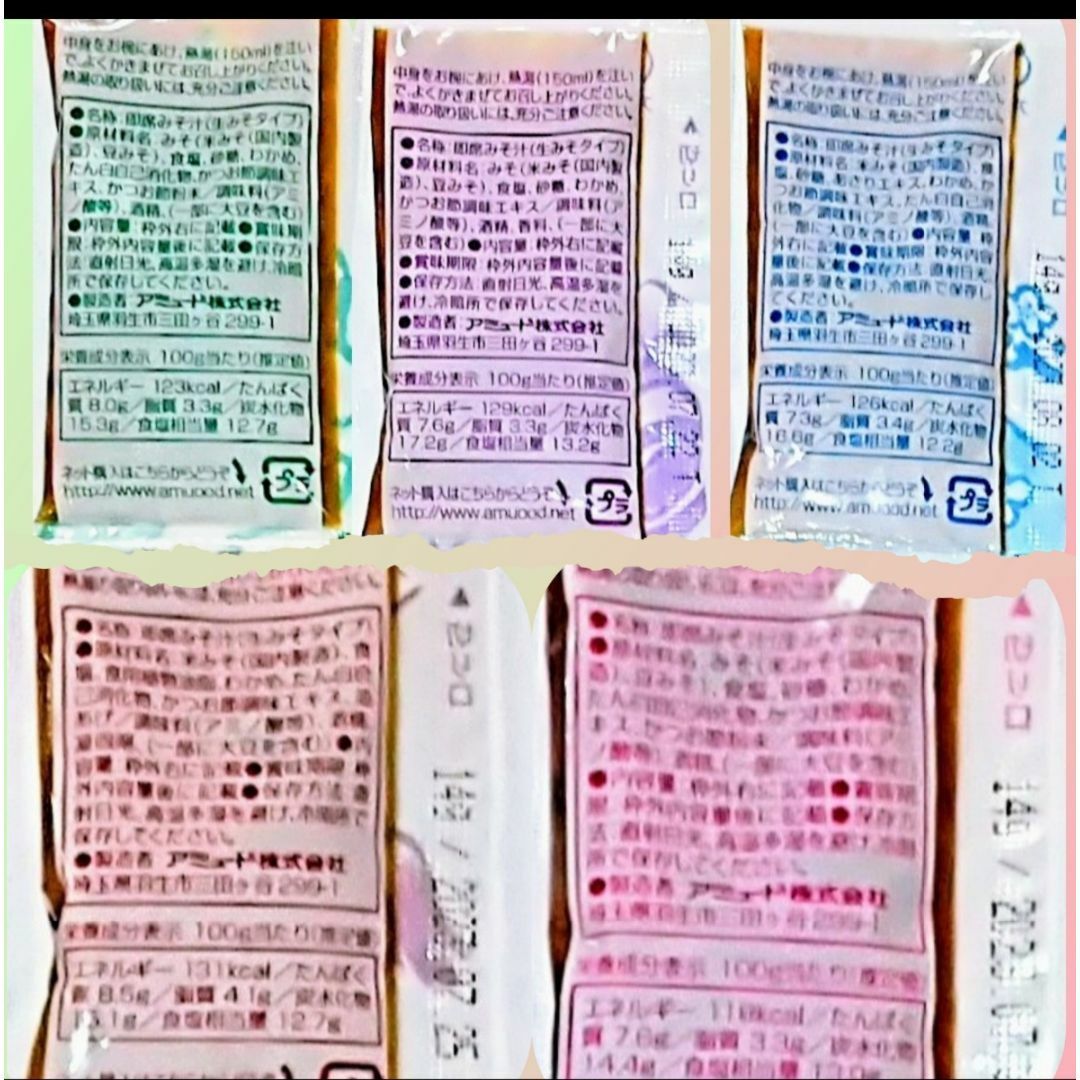 中身をお椀にあけ、熱湯(150ml)を注い
で、よくかきまぜてお召し上がりください。
熱湯の取り扱いには、充分ご注意ください。
●名称:即席みそ汁(生みそタイプ)
●原材料名:みそ(米みそ(国内製
造)、豆みそ)、食塩、砂糖、わかめ、
たん白自己消化物、かつお節調味エ
キス、かつお節粉末/調味料(アミ
ノ酸等)、酒精、(一部に大豆を含む)
●内容量:枠外右に記載●賞味期
限:枠外内容量後に記載●保存方
法:直射日光、高温多湿を避け、冷暗
所で保存してください。
●製造者:アミュード株式会社
埼玉県羽生市三田ヶ谷299-1
栄養成分表示 100g当たり(推定値)
エネルギー 123kcal/たんぱく
質 8.0g/脂質 3.3g/炭水化物
15.3g/食塩相当量 12.7g
ネット購入はこちらからどうぞ
http://www.amuood.net
プラ
中身をお椀にあけ、熱湯(150ml)を注い
で、よくかきまぜてお召し上がりください。
熱湯の取り扱いには、充分ご注意ください。
●名称:即席みそ汁(生みそタイプ)
●原材料名:みそ(米みそ(国内製
造)、豆みそ)、食塩、砂糖、わかめ、
かつお節調味エキス/調味料(ア
ミノ酸等)、酒精、香料、(一部に大
豆を含む)●内容量:枠外右に記載
●賞味期限:枠外内容量後に記載
●保存方法:直射日光、高温多湿を
避け、冷暗所で保存してください。
●製造者:アミュード株式会社
埼玉県羽生市三田ヶ谷299-1
栄養成分表示 100g当たり(推定値)
エネルギー 129kcal/たんぱく
質 7.6g/脂質 3.3g/炭水化物
17.2g/食塩相当量 13.2g
ネット購入はこちらからどうぞ
http://www.amuood.net
プラ
中身をお椀にあけ、熱湯(150ml)を注い
で、よくかきまぜてお召し上がりください。
熱湯の取り扱いには、充分ご注意ください。
●名称:即席みそ汁(生みそタイプ)
●原材料名:米みそ(国内製造)、食
塩、砂糖、あさりエキス、わかめ、か
つお節調味エキス、たん白自己消
化物/調味料(アミノ酸等)、酒精、
(一部に大豆を含む)●内容量:枠
外右に記載●賞味期限:枠外内容
量後に記載●保存方法:直射日光、
高温多湿を避け、冷暗所で保存し
てください。
●製造者:アミュード株式会社
埼玉県羽生市三田ヶ谷299-1
栄養成分表示 100g当たり(推定値)
エネルギー 126kcal/たんぱく
質 7.3g/脂質 3.4g/炭水化物
16.6g/食塩相当量 12.2g
ネット購入はこちらからどうぞ
http://www.amuood.net
プラ
熱湯の取り扱いには、充分ご注意ください。
●名称:即席みそ汁(生みそタイプ)
●原材料名:米みそ(国内製造)、食
塩、食用植物油脂、わかめ、たん白自
己消化物、かつお節調味エキス、油
あげ/調味料(アミノ酸等)、酒精、
凝固剤、(一部に大豆を含む)●内
容量:枠外右に記載●賞味期限:枠
外内容量後に記載●保存方法:直
射日光、高温多湿を避け、冷暗所で
保存してください。
●製造者:アミュード株式会社
埼玉県羽生市三田ヶ谷299-1
栄養成分表示 100g当たり(推定値)
エネルギー 131kcal/たんぱく
質 8.5g/脂質 4.1g/炭水化物
食塩相当量 12.7g
▲切り口
●名称:即席みそ汁(生みそタイプ)
●原材料名:みそ(米みそ(国内製
造)、豆みそ)、食塩、砂糖、わかめ、
たん白自己消化物、かつお節調味エ
キス、かつお節粉末/調味料(アミ
ノ酸等)、酒精、(一部に大豆を含む)
●内容量:枠外右に記載●賞味期
限:枠外内容量後に記載●保存方
法:直射日光、高温多湿を避け、冷暗
所で保存してください。
●製造者:アミュード株式会社
埼玉県羽生市三田ヶ谷299-1
栄養成分表示 100g当たり(推定値)
エネルギー たんぱく
質 7.6g/脂質 3.3g/炭水化物
14.4g/食塩相当量
▲切り口